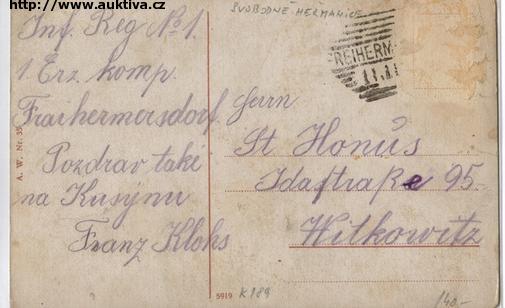 http://www.auktiva.cz
SVOBODNÉ-HERMANICE
Inf. Reg No 1.
1. Erz. komp.
Fraihermersdorf.
Pozdrav také
na Kusýnu
Franz Kloks
A. W. Nr. 35
REIHERM
11.11
Herrn
St Honůs
Idastraße 95.
Witkowitz
5919
K189
140.-